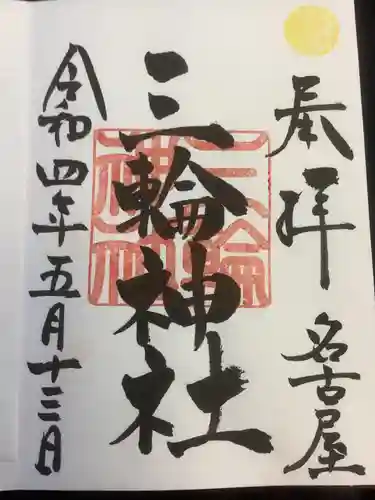 奉拝
名古屋
三輪神社
三輪神社
令和四年五月十三日